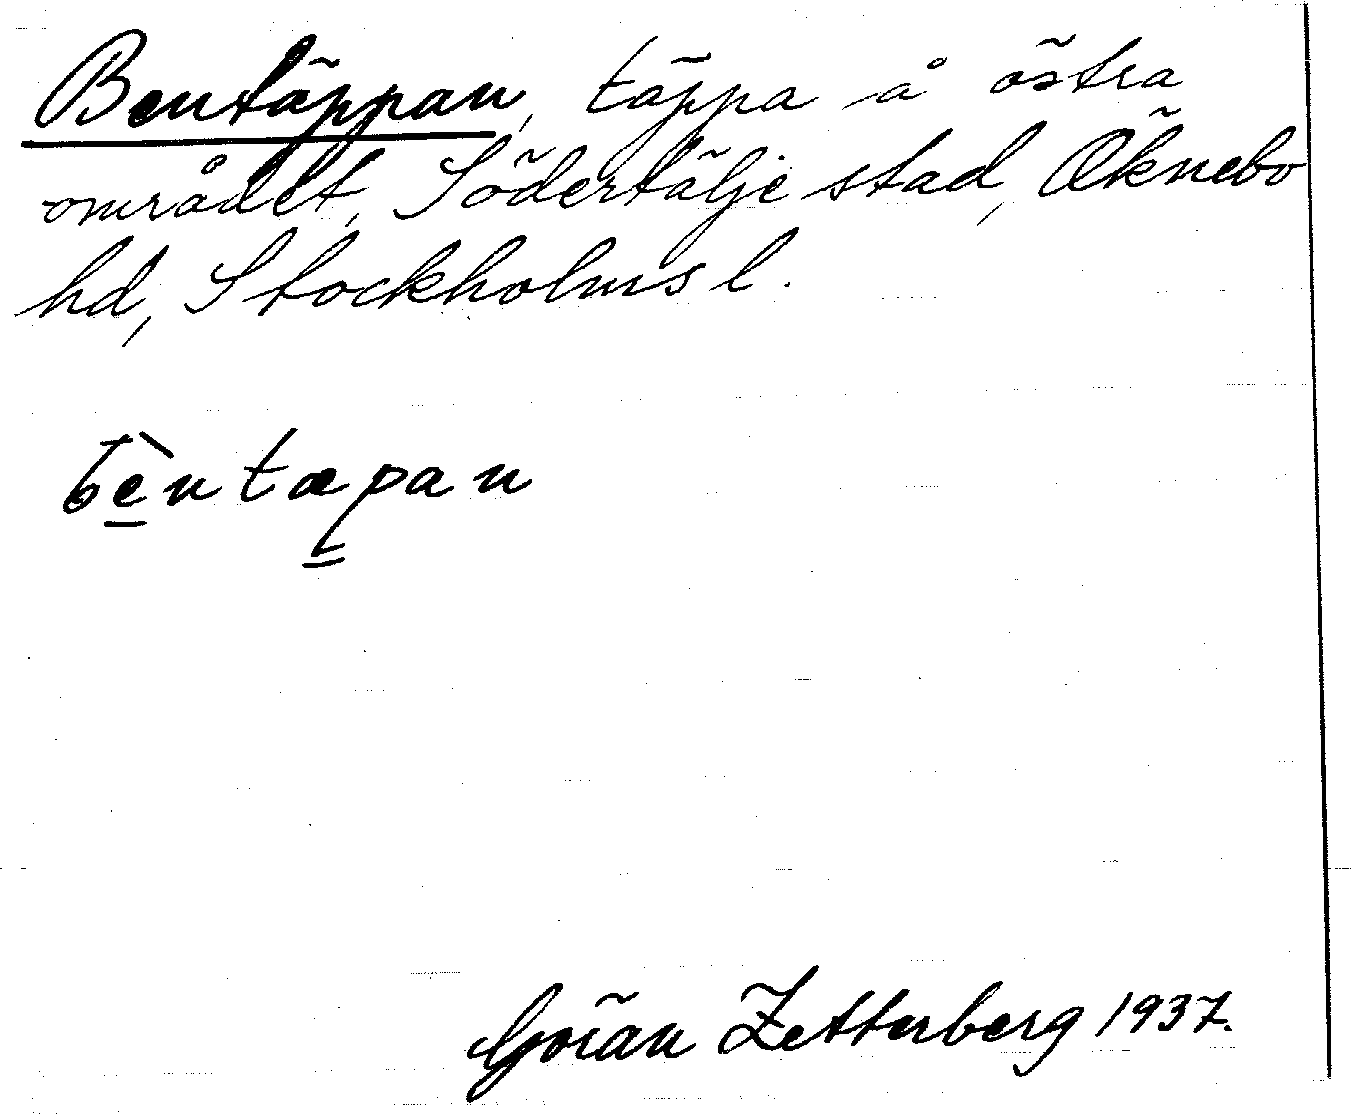 Bentäppan, täppa å östra
området, Södertälje stad, Öknebo
hd, Stockholms l.
bèntæpan
Göran Zetterberg 1937.